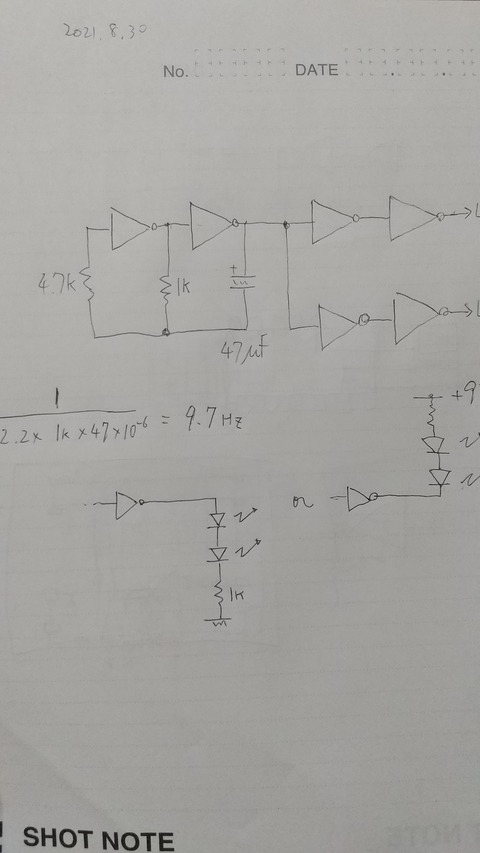 2021.8.30
No. DATE . .
4.7k
1k
+
47μF
1
2.2 x 1k x 47 x 10⁻⁶ = 9.7 Hz
+9
or
1k
SHOT NOTE